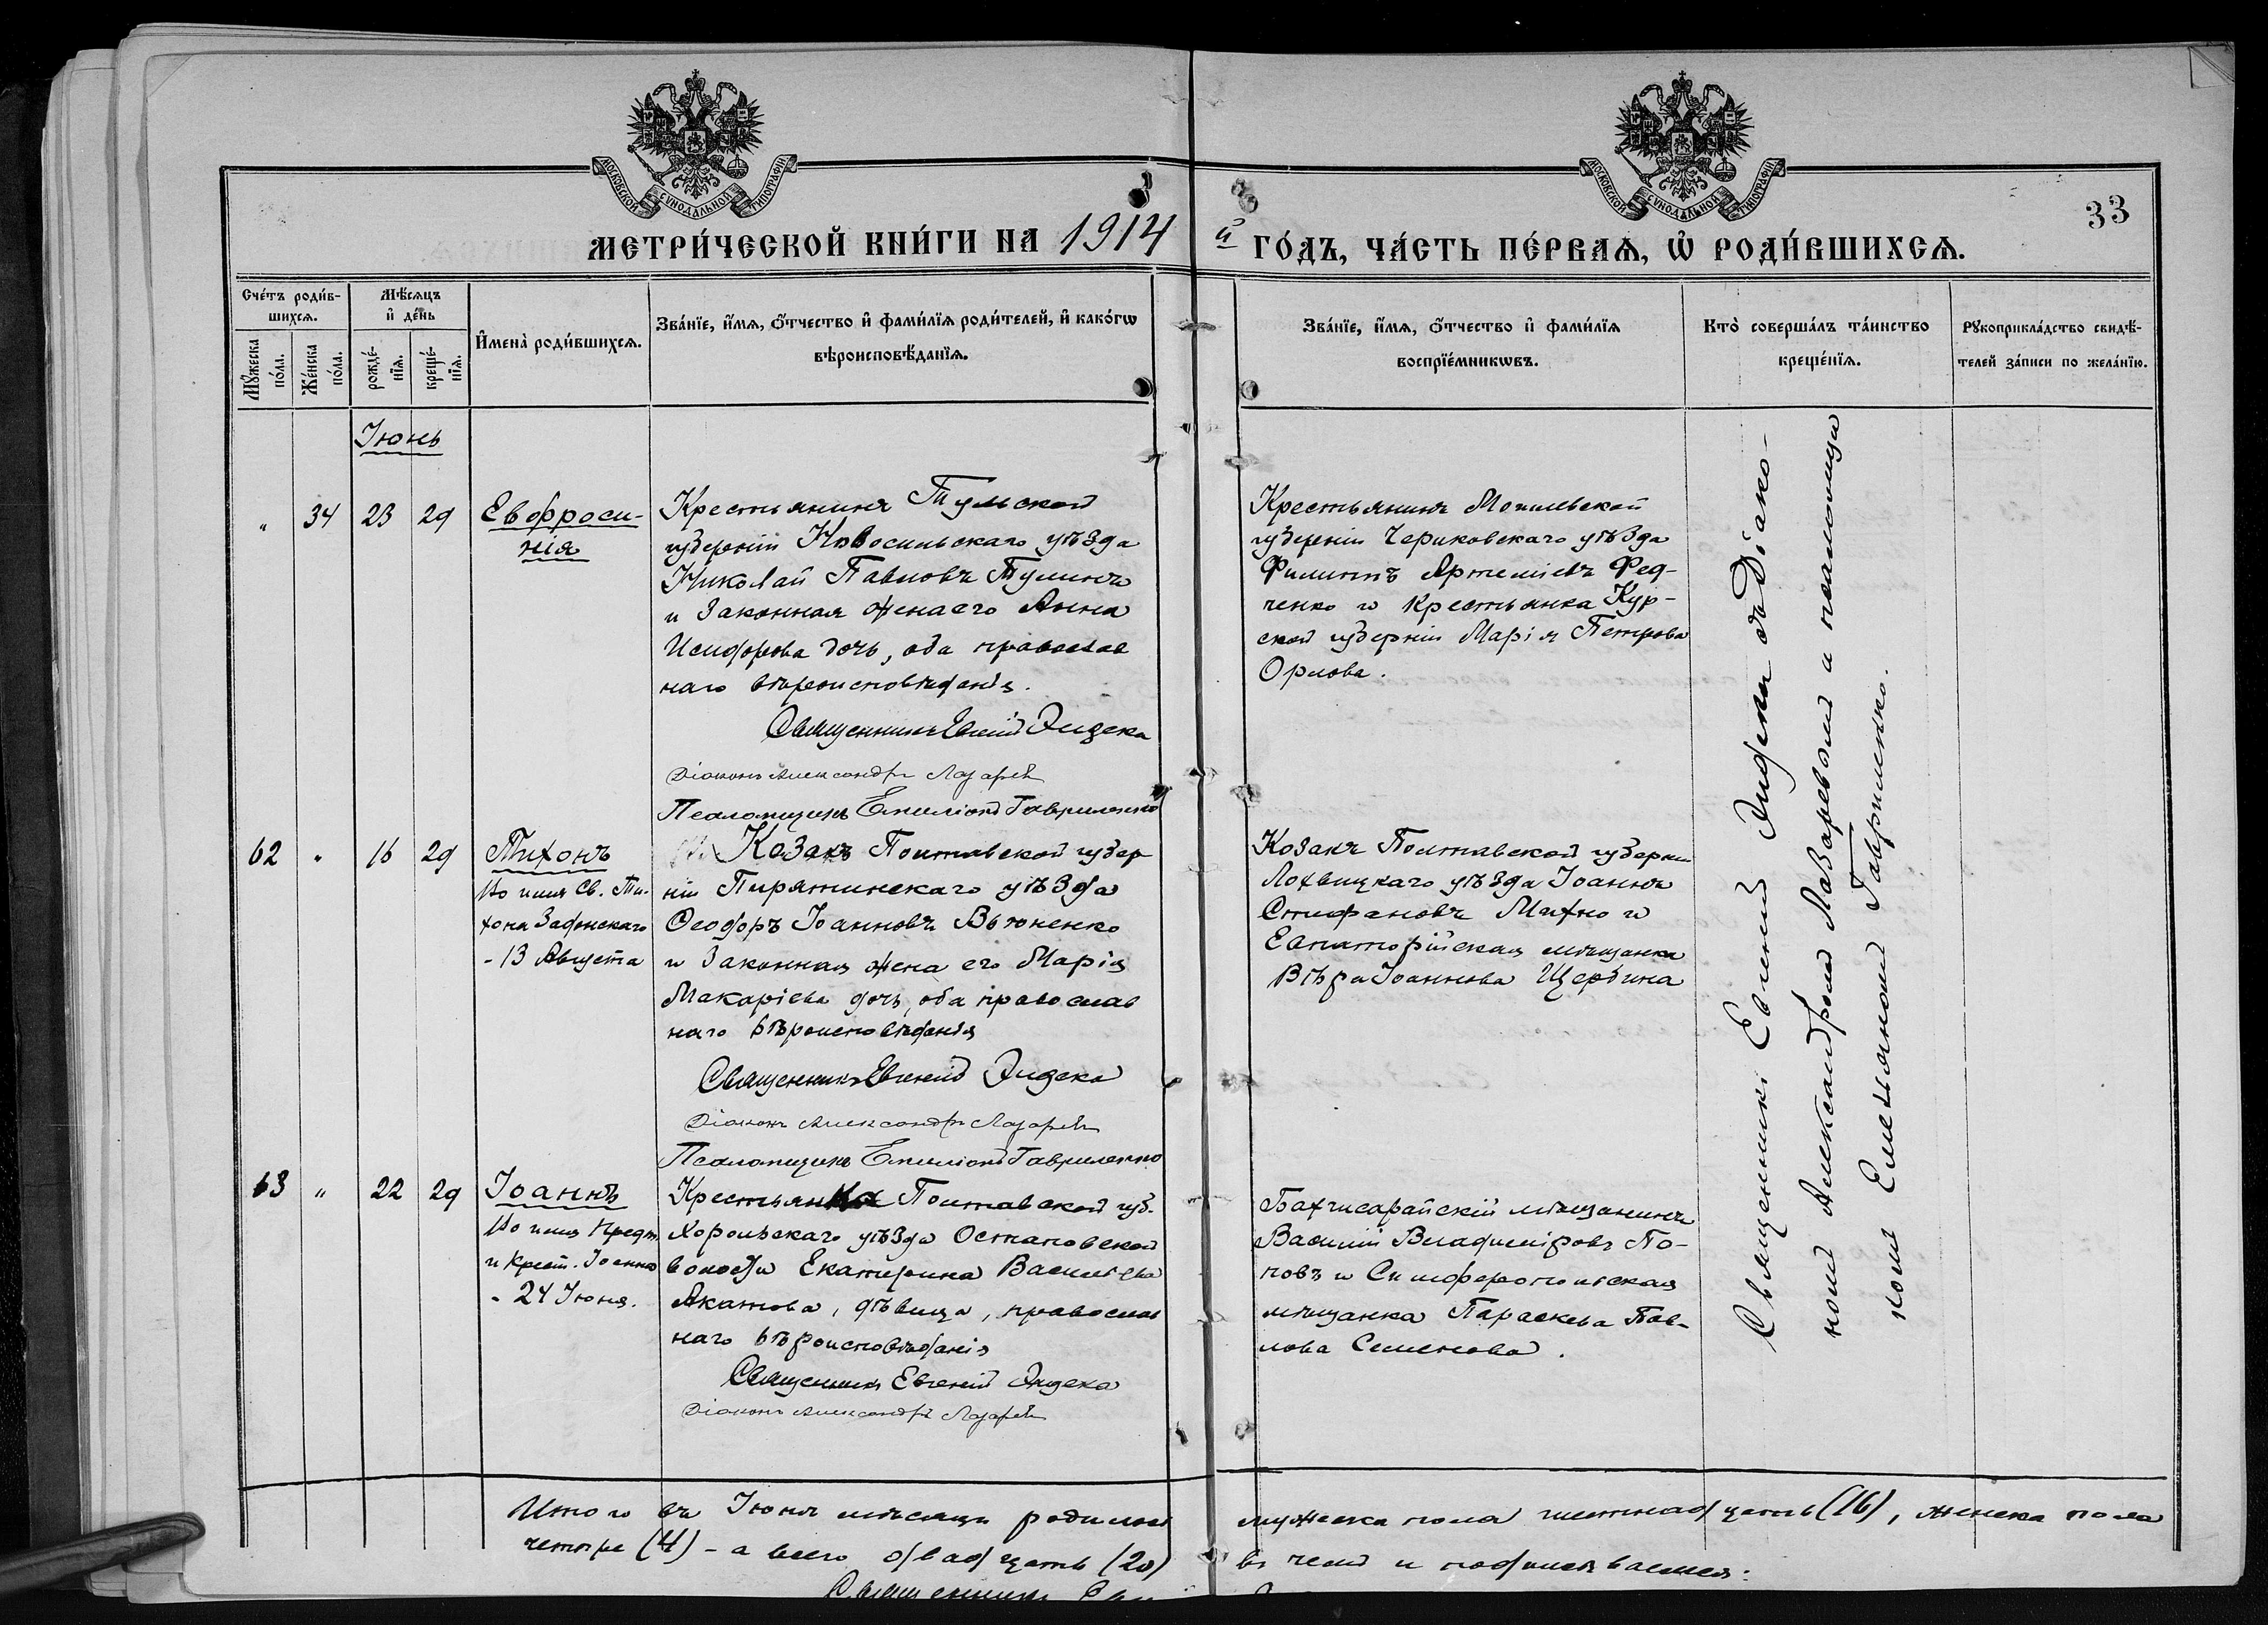 МОСКОВСКОЙ СѴНОДАЛЬНОЙ ТИПОГРАФІИ
МОСКОВСКОЙ СѴНОДАЛЬНОЙ ТИПОГРАФІИ
33
МЕТРИ́ЧЕСКОЙ КНИ́ГИ НА 1914 й ГО́ДЪ, ЧА́СТЬ ПЕ́РВАѦ, Ѡ҆ РОДИ́ВШИХСѦ.
Сче́тъ роди́в-
шихсѧ.
Мꙋ́жеска
по́ла.
Же́нска
по́ла.
Мѣ́сѧцъ
и҆ де́нь
рожде́-
нїѧ.
креще́-
нїѧ.
И҆мена̀ роди́вшихсѧ.
Зва́нїе, и҆́мѧ, ѻ҆́тчество и҆ фами́лїѧ роди́телей, и҆ како́гѡ
вѣроисповѣ́данїѧ.
Зва́нїе, и҆́мѧ, ѻ҆́тчество и҆ фами́лїѧ
воспрїе́мникѡвъ.
Кто̀ соверша́лъ та́инство
креще́нїѧ.
Рꙋкоприкла́дство свидѣ́-
телей за́писи по жела́нїю.
Іюнь
" 34 23 29
Евфроси-
нія
Крестьянинъ Тульской
губерніи Новосильскаго уѣзда
Николай Павловъ Тулинъ
и законная жена его Анна
Исидорова дочь, оба православ
наго вѣроисповѣданія.
Священникъ Евгеній Эндека
Діаконъ Александръ Лазаревъ
Псаломщикъ Емиліонъ Гавриленко
Крестьянинъ Могилевской
губерніи Чериковскаго уѣзда
Филиппъ Артеміевъ Фед-
ченко и крестьянка Кур-
ской губерніи Марія Петрова
Орлова.
62 " 16 29
Тихонъ
Во имя Св. Ти-
хона Задонскаго
- 13 Августа
Козакъ Полтавской губер
ніи Пирятинскаго уѣзда
Ѳеодоръ Іоанновъ Вьюненко
и законная жена его Марія
Макаріева дочь, оба православ
наго вѣроисповѣданія
Священникъ Евгеній Эндека
Діаконъ Александръ Лазаревъ
Псаломщикъ Емиліонъ Гавриленко
Козакъ Полтавской губерніи
Лохвицкаго уѣзда Іоаннъ
Стефановъ Махно и
Евпаторійская мѣщанка
Вѣра Іоаннова Щербина
63 " 22 29
Іоаннъ
Во имя Предт.
и Крест. Іоанна
- 24 Іюня.
Крестьянка Полтавской губ.
Хорольскаго уѣзда Остаповской
волости Екатерина Васильева
Акатова, дѣвица, православ
наго вѣроисповѣданія
Священникъ Евгеній Эндека
Діаконъ Александръ Лазаревъ
Бахчисарайскій мѣщанинъ
Василій Владиміровъ По-
повъ и Симферопольская
мѣщанка Параскева Пав-
лова Семенова.
Священникъ Евгеній Эндека съ Діако-
номъ Александромъ Лазаревымъ и псаломщи
комъ Емельяномъ Гавриленко.
Итого въ Іюнѣ мѣсяцѣ родилось мужеска пола шестнадцать (16), женска пола
четыре (4) - а всего двадцать (20) въ чемъ и подписываемся: